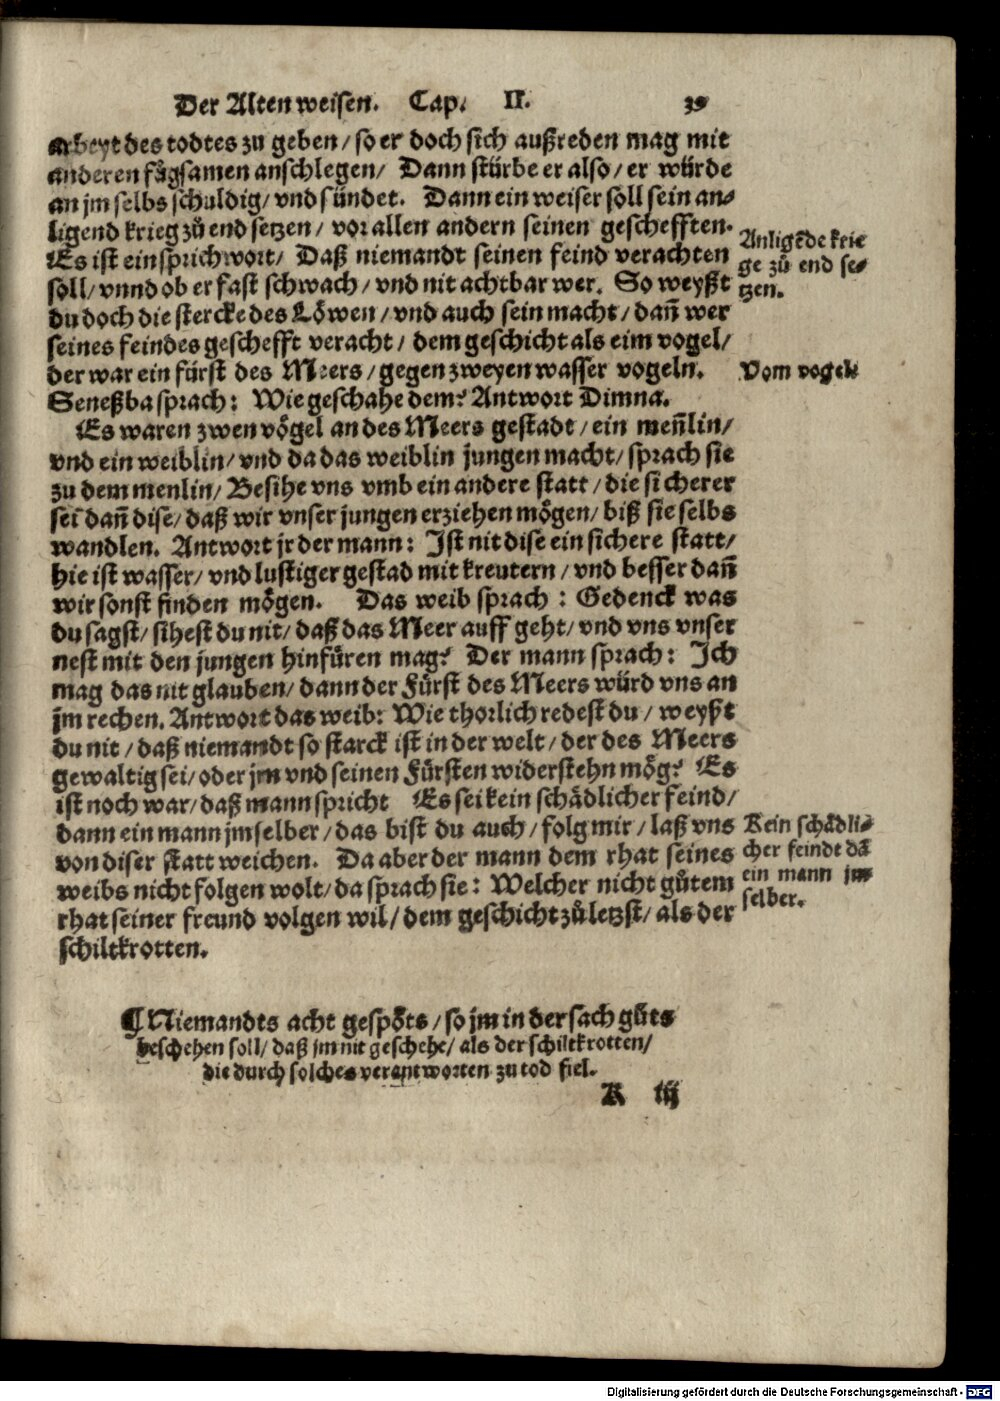 Der Alten weisen. Cap. II. 39
arbeyt des todtes zu geben / so er doch sich außreden mag mit
anderen fuͤgsamen anschlegen / Dann stürbe er also / er würde
an jm selbs schuldig / vnd sündet. Dann ein weiser soll sein an⸗
ligend krieg zuͦ end setzen / vor allen andern seinen geschefften.
Es ist ein sprichwort / Daß niemandt seinen feind verachten
soll / vnnd ob er fast schwach / vnd nit achtbar wer. So weyßt
du doch die stercke des Löwen / vnd auch sein macht / dañ wer
seines feindes geschefft veracht / dem geschicht als eim vogel /
der war ein fürst des Meers / gegen zweyen wasser vogeln.
Seneßba sprach: Wie geschahe dem? Antwort Dimna.
Anligēde krie
ge zuͦ end se⸗
tzen.
Vom vogel⸗
Es waren zwen vögel an des Meers gestadt / ein meñlin /
vnd ein weiblin / vnd da das weiblin jungen macht / sprach sie
zu dem menlin / Besihe vns vmb ein andere statt / die sicherer
sei dañ dise / daß wir vnser jungen erziehen mögen / biß sie selbs
wandlen. Antwort jr der mann: Ist nit dise ein sichere statt /
hie ist wasser / vnd lustiger gestad mit kreutern / vnd besser dañ
wir sonst finden mögen. Das weib sprach: Gedenck was
du sagst / sihest du nit / daß das Meer auff geht / vnd vns vnser
nest mit den jungen hinfüren mag? Der mann sprach: Ich
mag das nit glauben / dann der Fürst des Meers würd vns an
jm rechen. Antwort das weib: Wie thorlich redest du / weyßt
du nit / daß niemandt so starck ist in der welt / der des Meers
gewaltig sei / oder jm vnd seinen Fürsten widerstehn mög? Es
ist noch war / daß mann spricht Es sei kein schädlicher feind /
dann ein mann jm selber / das bist du auch / folg mir / laß vns
von diser statt weichen. Da aber der mann dem rhat seines
weibs nicht folgen wolt / da sprach sie: Welcher nicht guͦtem
rhat seiner freund volgen wil / dem geschicht zuͦ letzst / als der
schiltkrotten.
Kein schädli⸗
cher feindt dā
ein mann jm
selber.
¶ Niemandts acht gespöts / so jm in der sach guͦts
beschehen soll / daß jm nit geschehe / als der schiltkrotten /
die durch solches verantworten zu tod fiel.
K iij
Digitalisierung gefördert durch die Deutsche Forschungsgemeinschaft - DFG